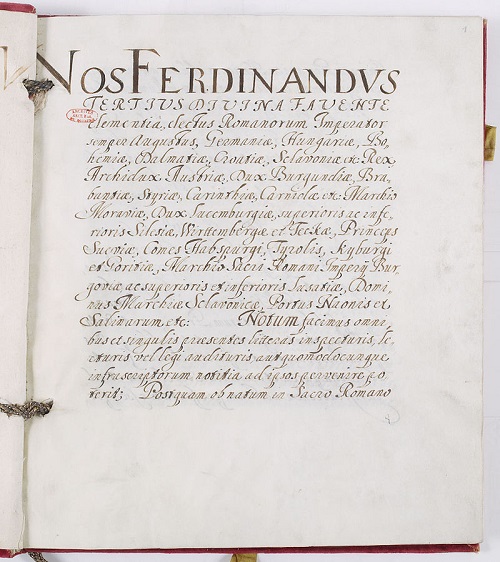 NOS FERDINANDVS
TERTIVS DIVINA FAVENTE
Clementia, electus Romanorum Imperator
semper Augustus, Germaniæ, Hungariæ, Bo,
hemiæ, Dalmatiæ, Croatiæ, Sclavoniæ etc Rex
Archidux Austriæ, Dux Burgundiæ, Bra,
bantiæ, Styriæ, Carinthiæ, Carniolæ etc: Marchio
Moraviæ, Dux Lucemburgiæ, superioris ac infe,
rioris Silesiæ, Wirttembergæ et Teckæ, Princeps
Sueviæ, Comes Habspurgi, Tyrolis, Kyburgi
et Goritiæ, Marchio Sacri Romani Imperij Bur,
goviæ ac superioris et inferioris Lusatiæ, Domi,
nus Marchiæ Sclavonicæ, Portus Naonis et
Salinarum, etc: Notum facimus omni,
bus et singulis præsentes litteras inspecturis, le,
cturis vel legi audituris aut quomodocunque
infrascriptorum notitia ad ipsos pervenire po,
terit; Postquam ob natum in Sacro Romano